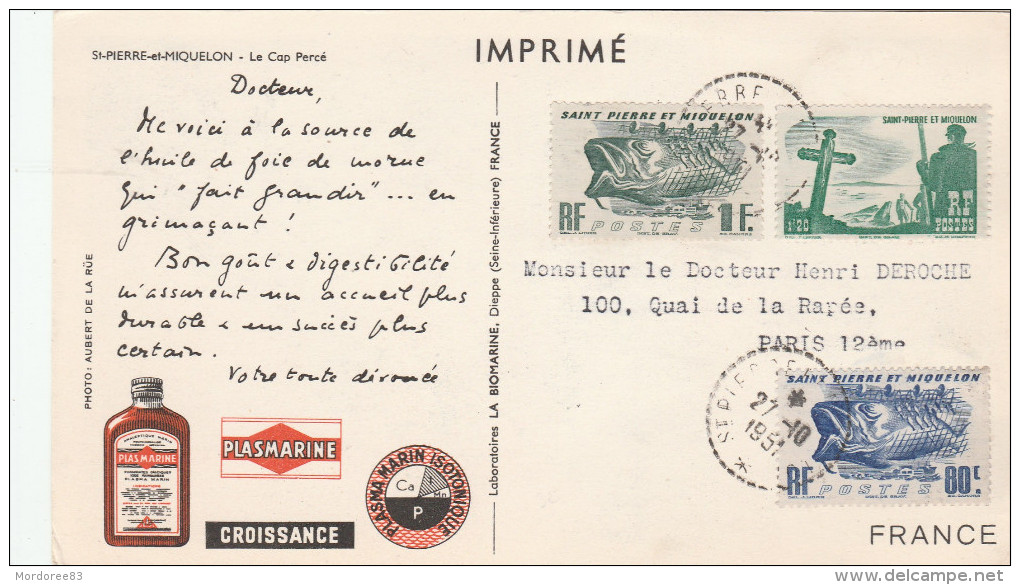 St-PIERRE-et-MIQUELON - Le Cap Percé
IMPRIMÉ
Docteur,
Me voici à la source de
l'huile de foie de morue
qui "fait grandir"... en
grimaçant !
Bon goût & digestibilité
m'assurent un accueil plus
durable & un succès plus
certain.
Votre toute dévouée
PHOTO: AUBERT DE LA RÜE
PLASMARINE
PLASMARINE
CROISSANCE
PLASMA MARIN ISOTONIQUE
Ca
P
Laboratoires LA BIOMARINE, Dieppe (Seine-Inférieure) FRANCE
SAINT PIERRE ET MIQUELON
RF POSTES 1F.
SAINT-PIERRE ET MIQUELON
1f20
RF
POSTES
Monsieur le Docteur Henri DEROCHE
100, Quai de la Rapée,
PARIS 12ème
ST PIERRE
27-10
195
SAINT PIERRE ET MIQUELON
RF POSTES 80c.
FRANCE
Mordoree83
delcampe.net